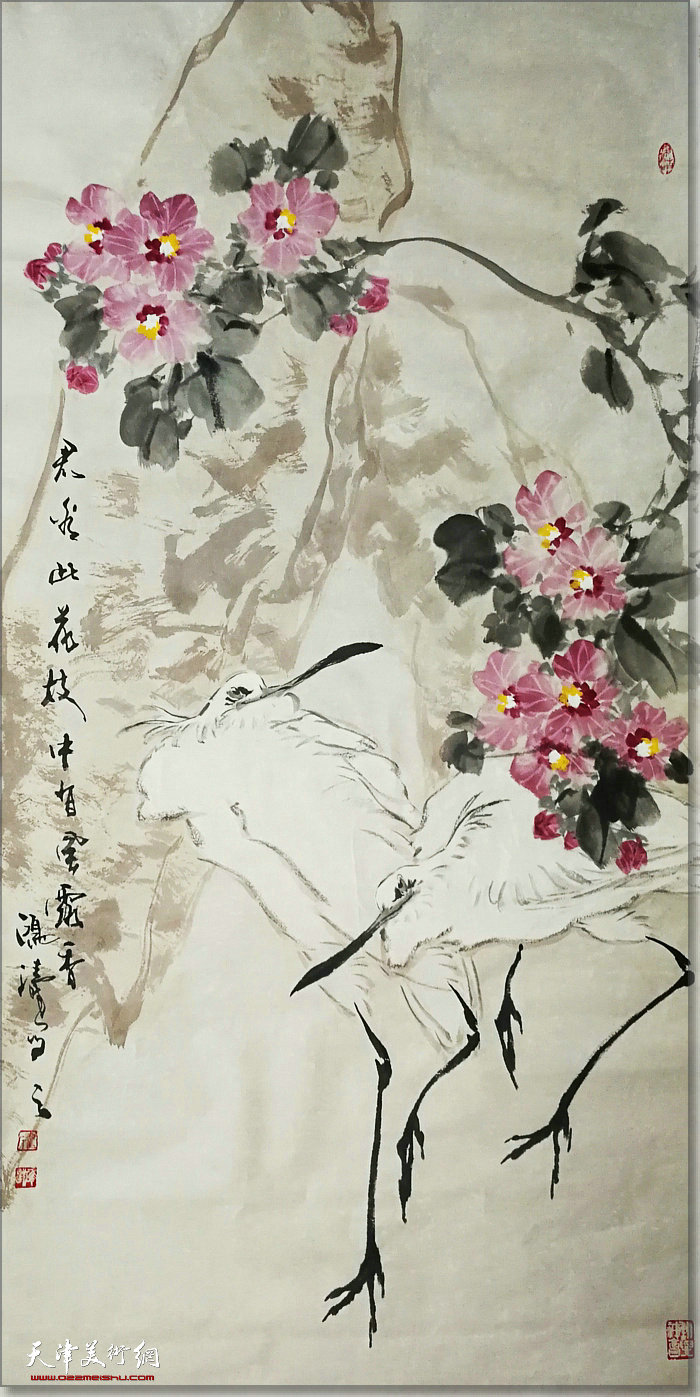 君看此花枝中有风露香
鸿涛写之
天津美術網
www.022meishu.com